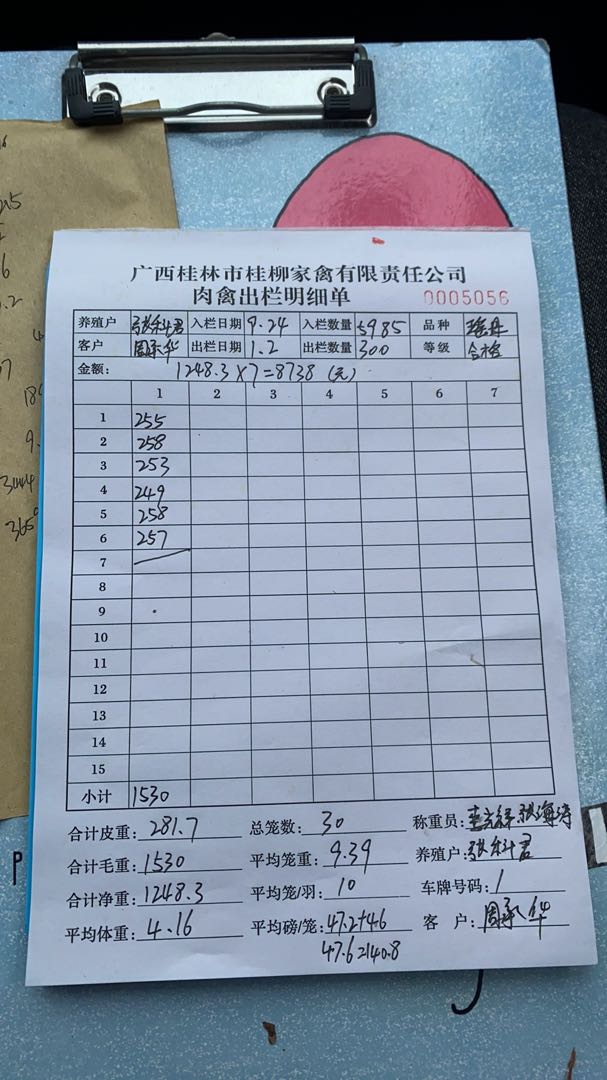 广西桂林市桂柳家禽有限责任公司
肉禽出栏明细单 0005056
养殖户 张斜君 入栏日期 9.24 入栏数量 5985 品种 瑶丹
客户 周承华 出栏日期 1.2 出栏数量 300 等级 合格
金额: 1248.3×7=8738(元)
1 2 3 4 5 6 7
1 255
2 258
3 253
4 249
5 258
6 257
7
8
9
10
11
12
13
14
15
小计 1530
合计皮重: 281.7 总笼数: 30 称重员:
合计毛重: 1530 平均笼重: 9.39 养殖户: 张斜君
合计净重: 1248.3 平均笼/羽: 10 车牌号码: /
平均体重: 4.16 平均磅/笼: 47.2+46 客户: 周承华
47.6=140.8
16
6
9.
3444